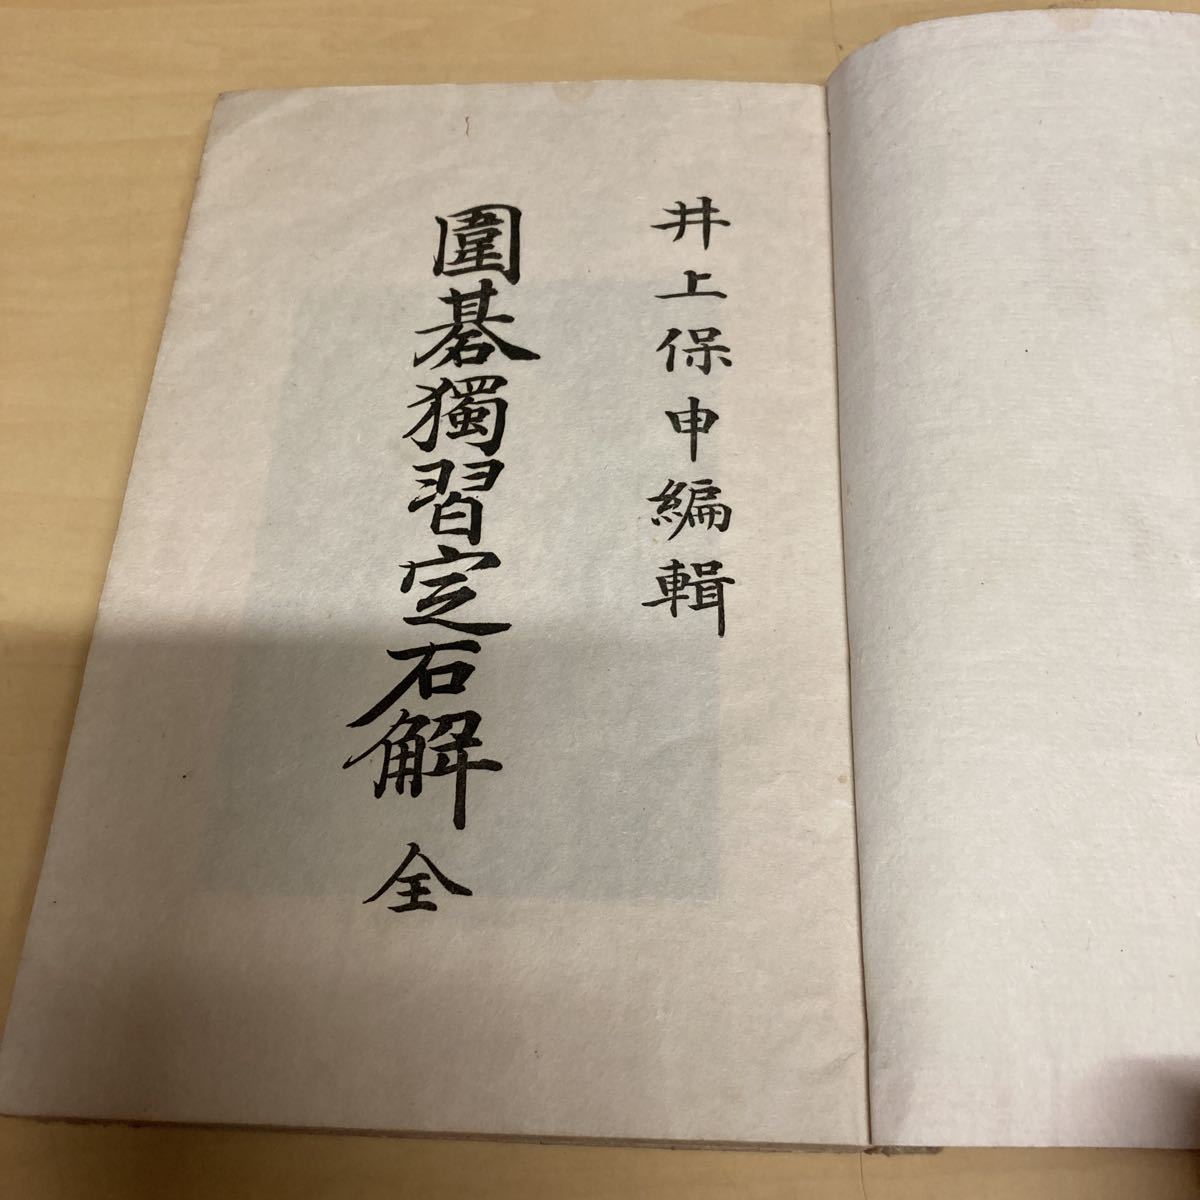 井上保申編輯
圍碁獨習定石解 全